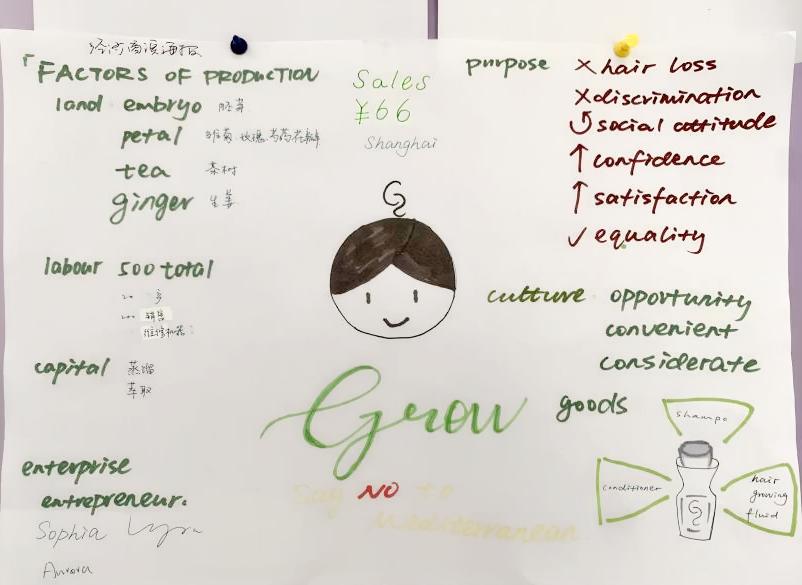 经济商误海报
「FACTORS OF PRODUCTION
land embryo 胚芽
petal 雏菊、玫瑰、芍药花瓣
tea 茶树
ginger 生姜
labour 500 total
销售
维修机器
capital 蒸馏
萃取
enterprise
entrepreneur.
Sophia Lyra
Aurora
Sales
¥66
Shanghai
Grow
Say NO to
Mediterranean
purpose × hair loss
× discrimination
social attitude
↑ confidence
↑ satisfaction
✓ equality
culture opportunity
convenient
considerate
goods
shampo
conditioner
hair
growing
fluid